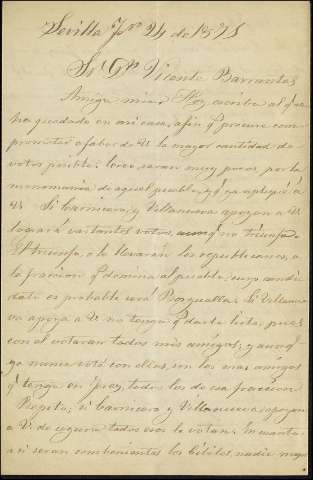 Sevilla 24 de 1871
Sr Dn Vicente Barrantes
Amigo mio: Hoy escribo al que
ha quedado en mi casa, afin qe procure com-
prometer a fabor de V. la mayor cantidad de
votos posible. Creo, seran muy pocos, por la
de aquel pueblo, y qe ya
V. Si Carnicero, y Villanueva apoyan a V.
lograrà bastantes votos, aunqe no triunfo.
El triunfo, o lo llevaràn los republicanos, o
la fraccion qe domina al pueblo, cuyo candi-
dato es probable serà Si Villanue-
va apoya a V. no tengo qe darle lista, pues
con el votaràn todos mis amigos; y aunqe
yo nunca votè con ellos, son los mas amigos
qe tengo en todos los de esa fraccion
Repito, si Carnicero y Villanueva apoyan
a V. de seguro todos esos le votan. En cuanto
a si seran convenientes los nadie mejor